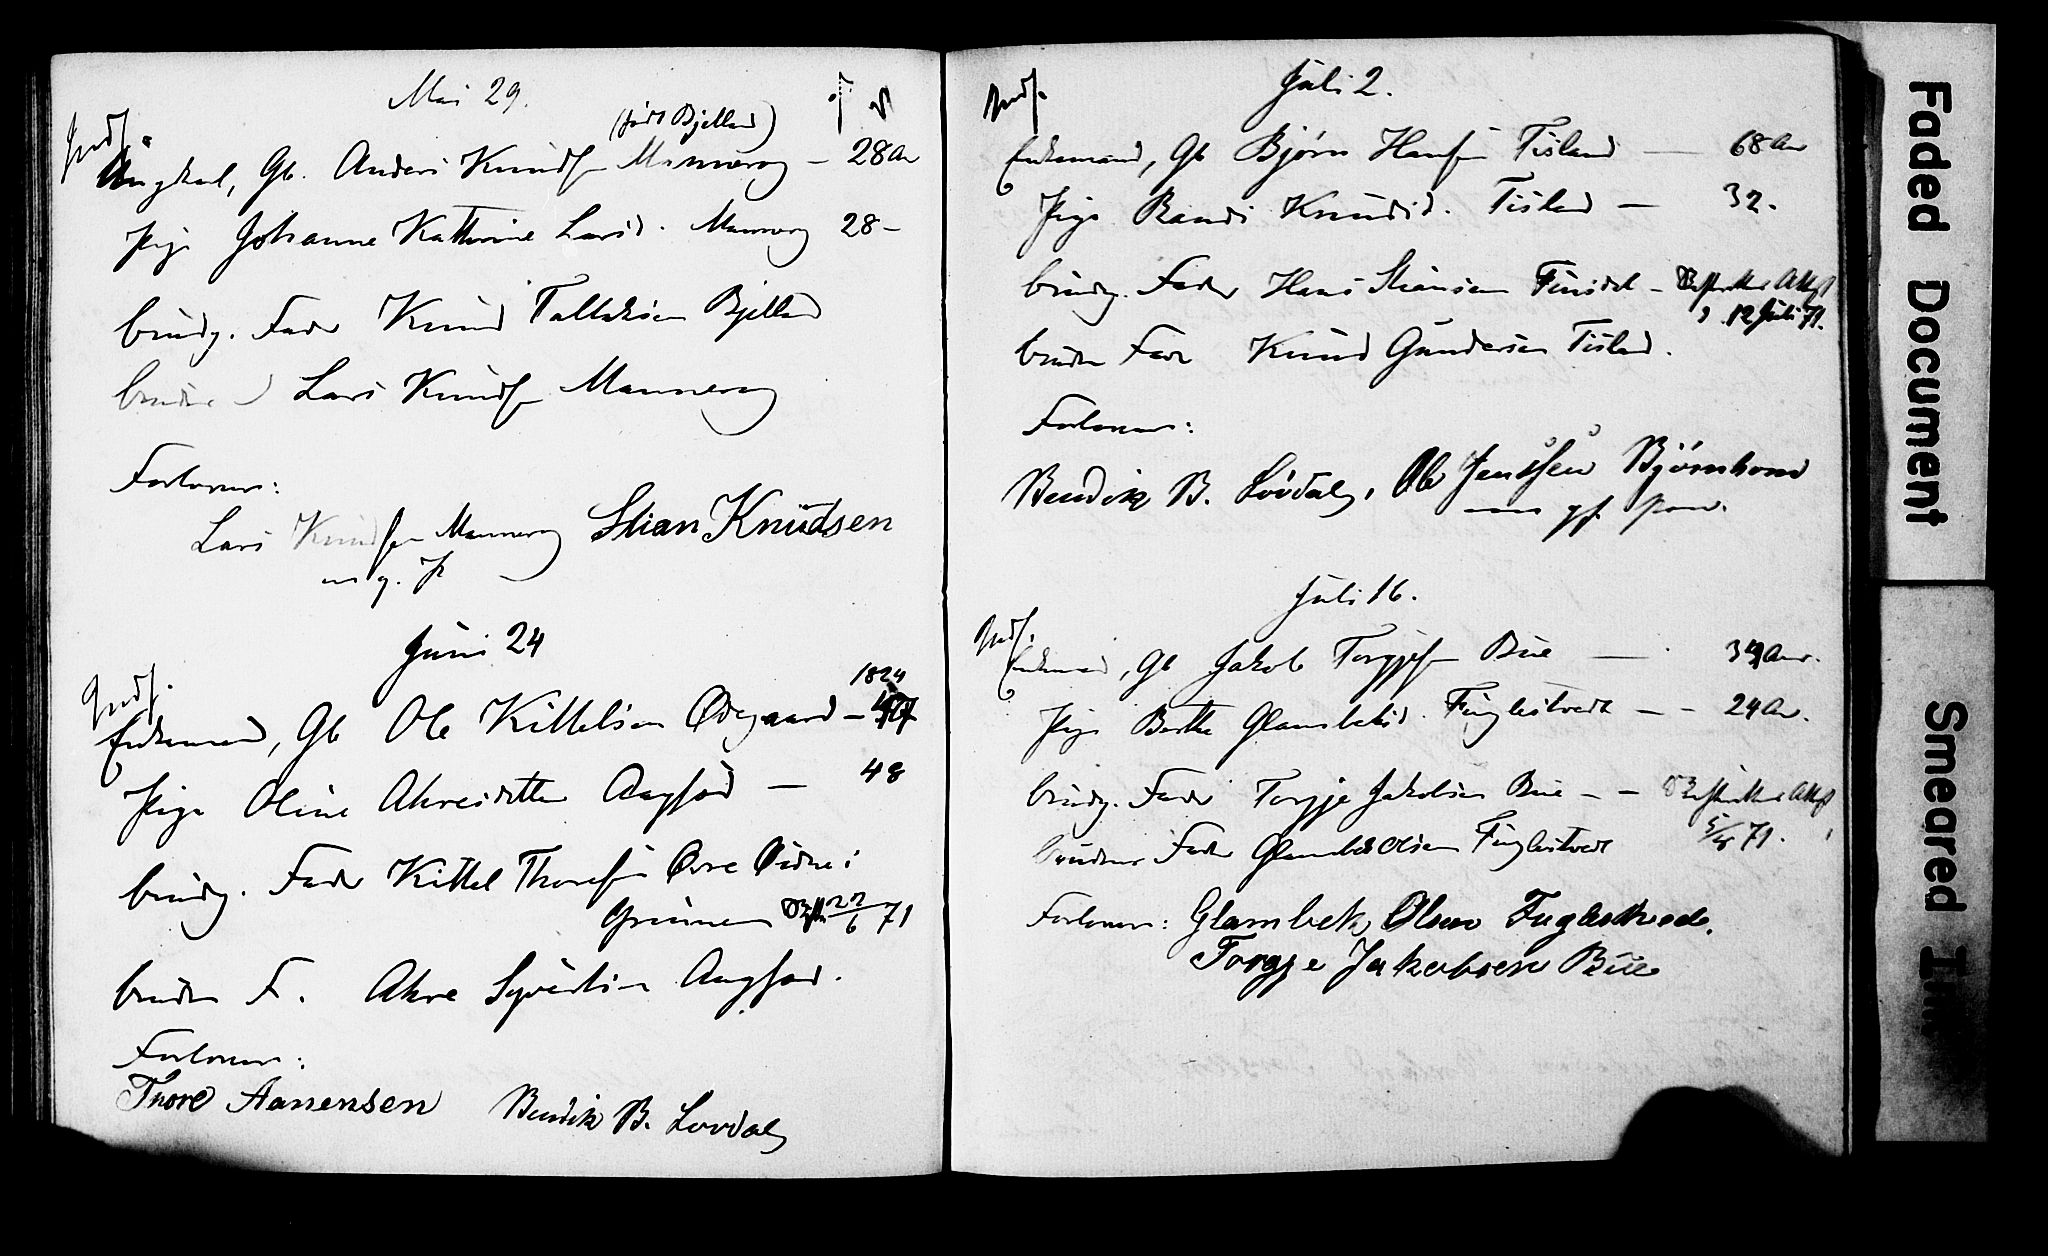 Mai 29.
Indf.
(født Bjelland)
Ungkarl, Gb. Anders Knudsen Mannerog – 28 Aar
Pige Johanne Kathrine Larsd. Mannerog 28 –
brudg. Fader Knud Tallaksen Bjelland
brudens " Lars Knudsen Mannerog
Forlovere:
Lars Knudsen Mannerog Stian Knudsen
m. g. P.
Juni 24
Indf.
1824
Enkemand, Gb Ole Kittelsen Ødegaard – 47
Pige Oline Akresdatter Augland — 48
brudg. Fader Kittel Thoresen Øvre Øidne i
Grimen 22/6 71
bruden F. Akre Syvertsen Augland.
Forlovere:
Thore Aanensen Bendik B. Løvdal
Juli 2.
Indf.
Enkemand, Gb Bjørn Hansen Tisland — 68 Aar
Pige Randi Knudsd. Tisland — 32.
brudg. Fader Hans Stiansen – Besk. Attest
12 Juli 71.
bruden Fader Knud Gundersen Tisland.
Forlovere:
Bendik B. Løvdal, Ole Jenssen Bjørnhom
m. p. Pen.
Juli 16.
Indf.
Enkemand, Gb Jakob Torgjesen Bue — 34 Aar.
Pige Berthe Glambeksd. Fuglestvedt — – 24 Aar.
brudg. Fader Torgje Jakobsen Bue – – Attest
71.
brudens Fader Glambek Olsen Fuglestvedt
Forlovere: Glambek Olsen Fuglestvedt.
Torgje Jakobsen Bue
Faded Document
Smeared Ink